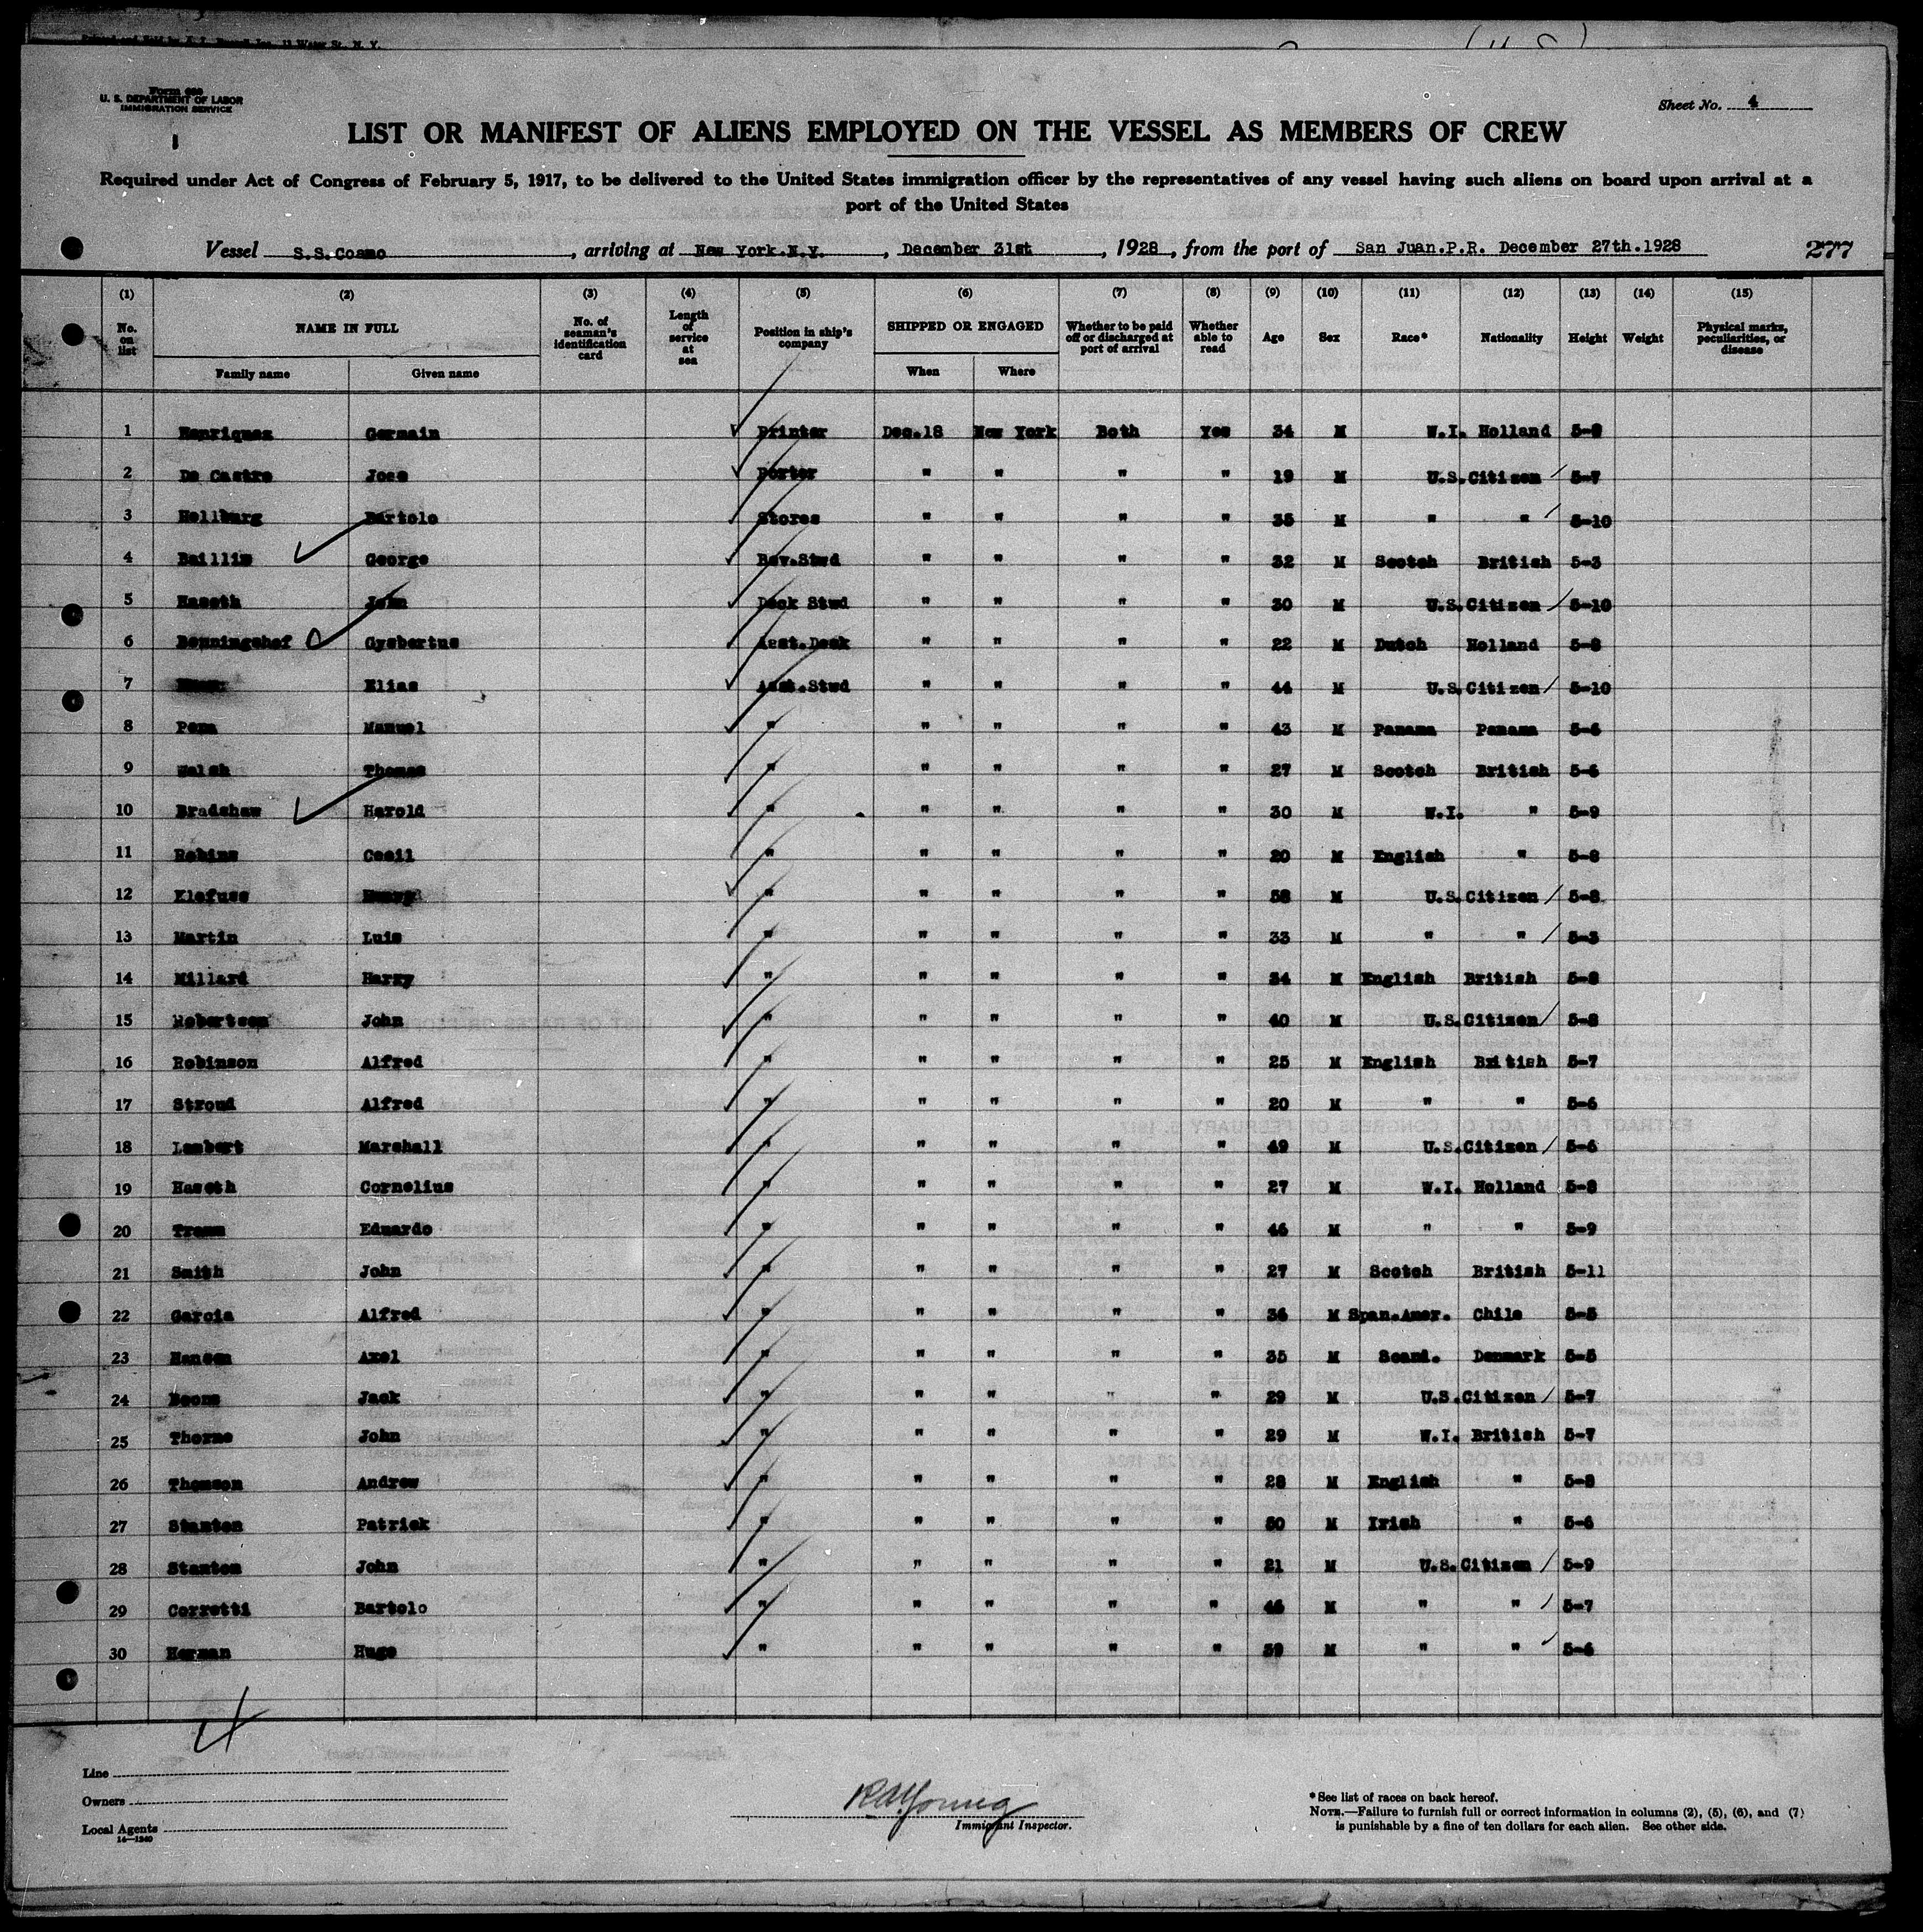 Form 680
U. S. DEPARTMENT OF LABOR
IMMIGRATION SERVICE
Sheet No. 4
LIST OR MANIFEST OF ALIENS EMPLOYED ON THE VESSEL AS MEMBERS OF CREW
Required under Act of Congress of February 5, 1917, to be delivered to the United States immigration officer by the representatives of any vessel having such aliens on board upon arrival at a
port of the United States
Vessel S.S.Coamo, arriving at New York.N.Y., December 31st, 1928, from the port of San Juan.P.R. December 27th.1928 277
(1) (2) (3) (4) (5) (6) (7) (8) (9) (10) (11) (12) (13) (14) (15)
No. on list NAME IN FULL Family name Given name No. of seaman's identification card Length of service at sea Position in ship's company SHIPPED OR ENGAGED When Where Whether to be paid off or discharged at port of arrival Whether able to read Age Sex Race* Nationality Height Weight Physical marks, peculiarities, or disease
1 Henriquez Germain Printer Dec.18 New York Both Yes 34 M W.I. Holland 5-8
2 De Castro Jose Porter " " " " 19 M U.S.Citizen 5-7
3 Hellburg Bartolo Stores " " " " 35 M " " 5-10
4 Baillie George Bev.Stwd " " " " 32 M Scotch British 5-3
5 Haseth John Deck Stwd " " " " 30 M U.S.Citizen 5-10
6 Benningshof Gysbertus Asst.Deck " " " " 22 M Dutch Holland 5-8
7 Elias Asst.Stwd " " " " 44 M U.S.Citizen 5-10
8 Pena Manuel " " " " " 43 M Panama Panama 5-6
9 Walsh Thomas " " " " " 27 M Scotch British 5-6
10 Bradshaw Harold " " " " " 30 M W.I. " 5-9
11 Robins Cecil " " " " " 20 M English " 5-8
12 Klefuss Henry " " " " " 58 M U.S.Citizen 5-8
13 Martin Luis " " " " " 33 M " " 5-3
14 Millard Harry " " " " " 34 M English British 5-8
15 Robertson John " " " " " 40 M U.S.Citizen 5-8
16 Robinson Alfred " " " " " 25 M English British 5-7
17 Stroud Alfred " " " " " 20 M " " 5-6
18 Lambert Marshall " " " " " 49 M U.S.Citizen 5-6
19 Haseth Cornelius " " " " " 27 M W.I. Holland 5-8
20 Tromm Eduardo " " " " " 46 M " " 5-9
21 Smith John " " " " " 27 M Scotch British 5-11
22 Garcia Alfred " " " " " 36 M Span.Amer. Chile 5-5
23 Hansen Axel " " " " " 35 M Scand. Denmark 5-5
24 Boone Jack " " " " " 29 M U.S.Citizen 5-7
25 Thorne John " " " " " 29 M W.I. British 5-7
26 Thomson Andrew " " " " " 28 M English " 5-8
27 Stanton Patrick " " " " " 50 M Irish " 5-6
28 Stanton John " " " " " 21 M U.S.Citizen 5-9
29 Corretti Bartolo " " " " " 46 M " " 5-7
30 Herman Hugo " " " " " 39 M " " 5-6
Line
Owners
Local Agents
14—1240
RAYoung
Immigrant Inspector.
*See list of races on back hereof.
NOTE.—Failure to furnish full or correct information in columns (2), (5), (6), and (7)
is punishable by a fine of ten dollars for each alien. See other side.